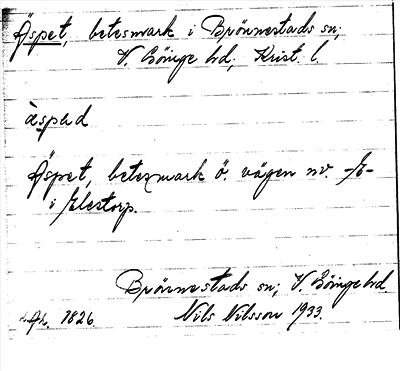 Äspet, betesmark i Brönnestads sn;
V. Göinge hd; Krist. l.
äspəd
Äspet, betesmark ö. vägen nv.
i Elestorp.
Brönnestads sn; V. Göinge hd.
1826. Nils Nilsson 1933.